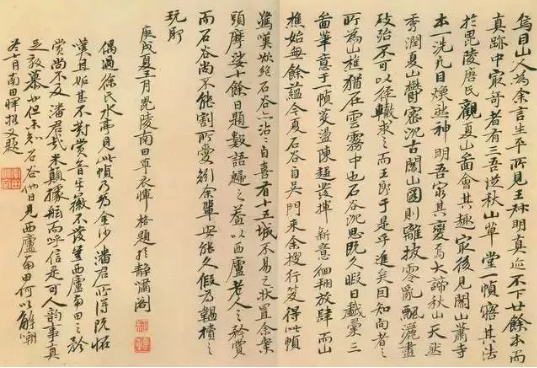 烏目山人為余言生平所見王叔明真迹不下廿餘本而
真跡中最奇者有三吾從秋山草堂一幀悟其法
於毘陵唐氏觀夏山圖會其趣最後見關山蕭寺
本一洗凡目煥然神明吾窮其變焉大諦秋山天然
秀潤夏山鬱密沉古關山圖則離披零亂飄灑盡
致殆不可以徑轍求之而王郎于是乎進矣因知向者之
所為山樵猶在雲霧中也石谷沉思既久暇日戲彙三
啚筆意于一幀滌盪陳趨發揮新意徊翔放肆而山
樵始無餘蘊今夏石谷自吳門來余搜行笈得此幀
驚嘆欲絕石谷亦沾沾自喜有十五城不易之狀置余案
頭摩挲十餘日題數語歸之蓋以西廬老人之矜賞
而石谷尚不能割所愛矧余輩安能久假為韞櫝之
玩耶
庚戌夏五月毘陵南田草衣惲格題於靜嘯閣
偶過徐氏水亭見此幀乃為金沙潘君所得既怪
嘆且妬甚不對賞音牙徽不發豈西廬南田之矜
賞尚不及潘君哉米顛據舷而呼信是可人韻事真
足效慕也但未知石谷他日見西廬南田何以解嘲
冬十月南田惲格又題